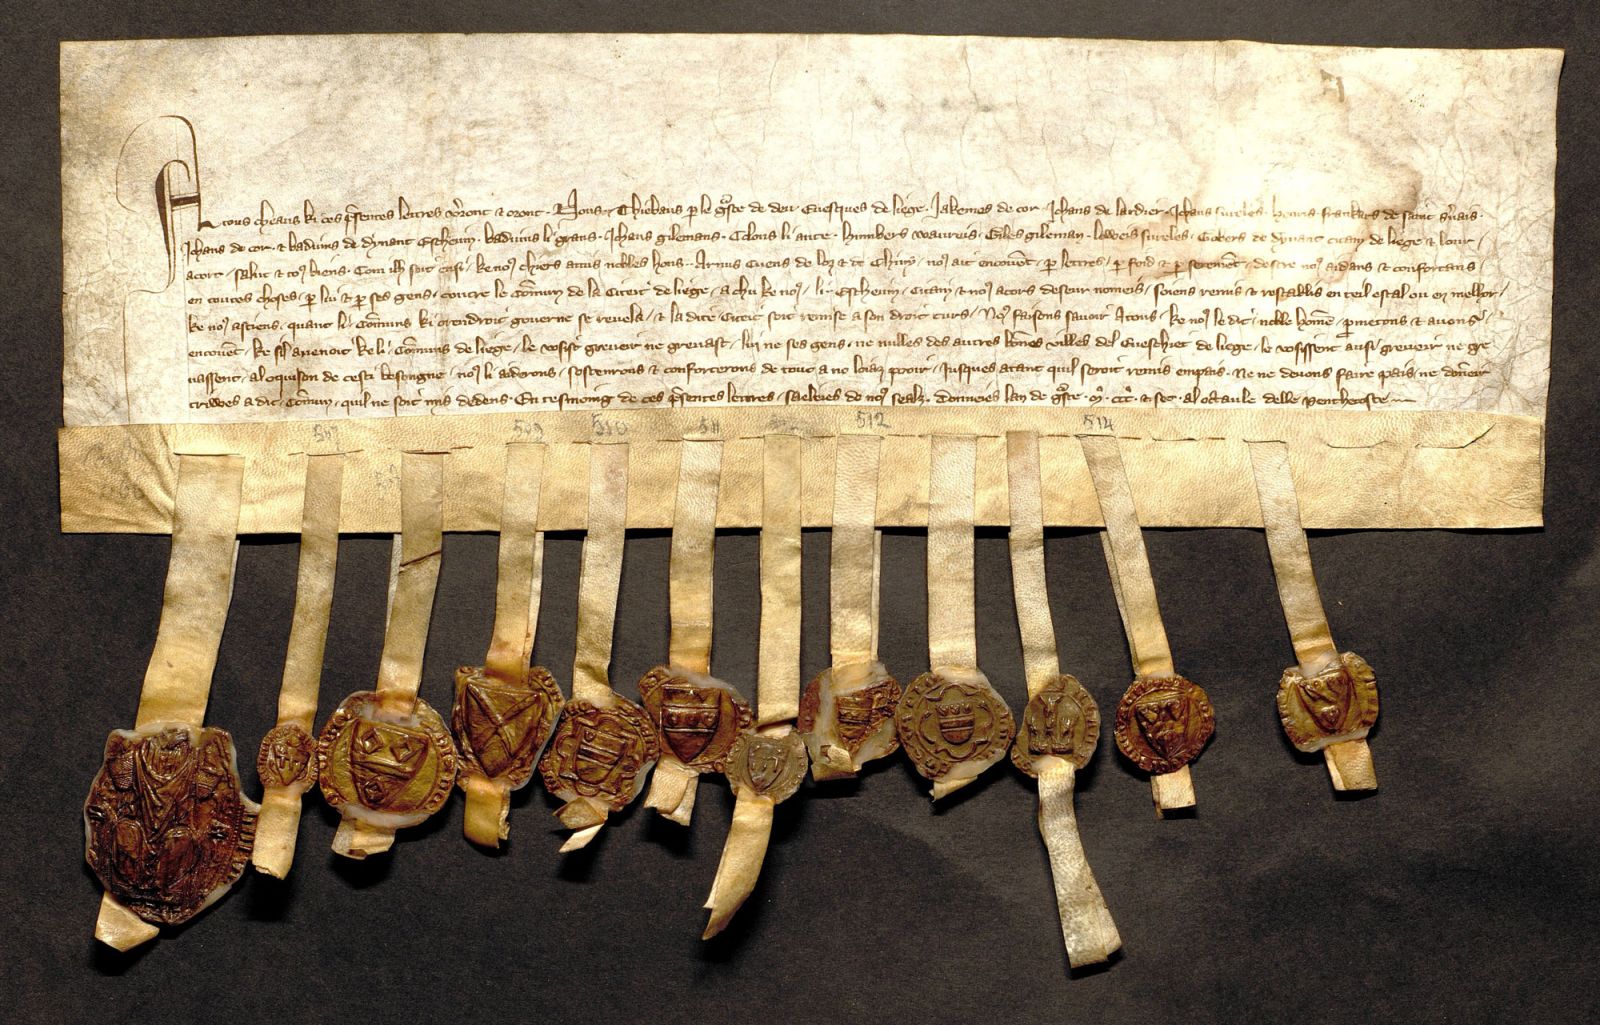 A tous cheaus ki ces p̄sentes lettres v̄ront ⁊ oront. Nous. Thiebaus p le gr̄sce de deu Euesques de liege. Jakemes de cor. Johans de lardier. Johans sureles. Henris frankars de saint s̄uais.
Johans de cor. ⁊ baduins de dynant Escheuin. baduins li grans. Johans gilemans. Colons li aute. humbers waureis. Giles gileman. loweis sureles. Gobers de dynant citain de liege ⁊ lour
acort. salut ⁊ tos biens. Com ilh soit ensi. ke noꝰ chiers amis nobles hons. Arnus Cuens de loz ⁊ de Chiny. noꝰ ait encouēt. p lettres. p foid ⁊ p serement. destre noꝰ aidans ⁊ confortans
en toutes choses. p lui ⁊ p ses gens. contre le Cōmun de la Citeit de liege. a chu ke noꝰ. li Escheuin. Citain ⁊ noꝰ acors deseur nomeis. soiens remis ⁊ restablis en teil estat ou en melhor
ke noꝰ astiens. quant li Cōmuns ki orendroit gouerne se reuela. ⁊ la dite Citeit soit remise a son droit curs. Noꝰ faisons sauoir A tous. ke noꝰ le dit noble homē. pmetons ⁊ auons
encouēt. ke sil auenoit ke li Cōmuns de liege. le vosist greueir ne greuast. lui ne ses gens. ne nulles des autres bōnes villes del Eueschiet de liege. le vosissent ausi greueir ne gre
uassent. al oquison de cesti besongne. noꝰ li aiderons. sostenrons ⁊ conforterons de tout a no loiaz pooir. Jusques atant quil seroit remis empais. Ne ne deuons faire pais. ne doneir
triwes a dit. Cōmun. quil ne soit mis dedens. En tesmoing de ces p̄sentes lettres. saeleies de noꝰ sealz. donneies lan de gr̄sce. M. CCC. ⁊ set. al octaule delle Penthecoste
507 509 510 511 512 514